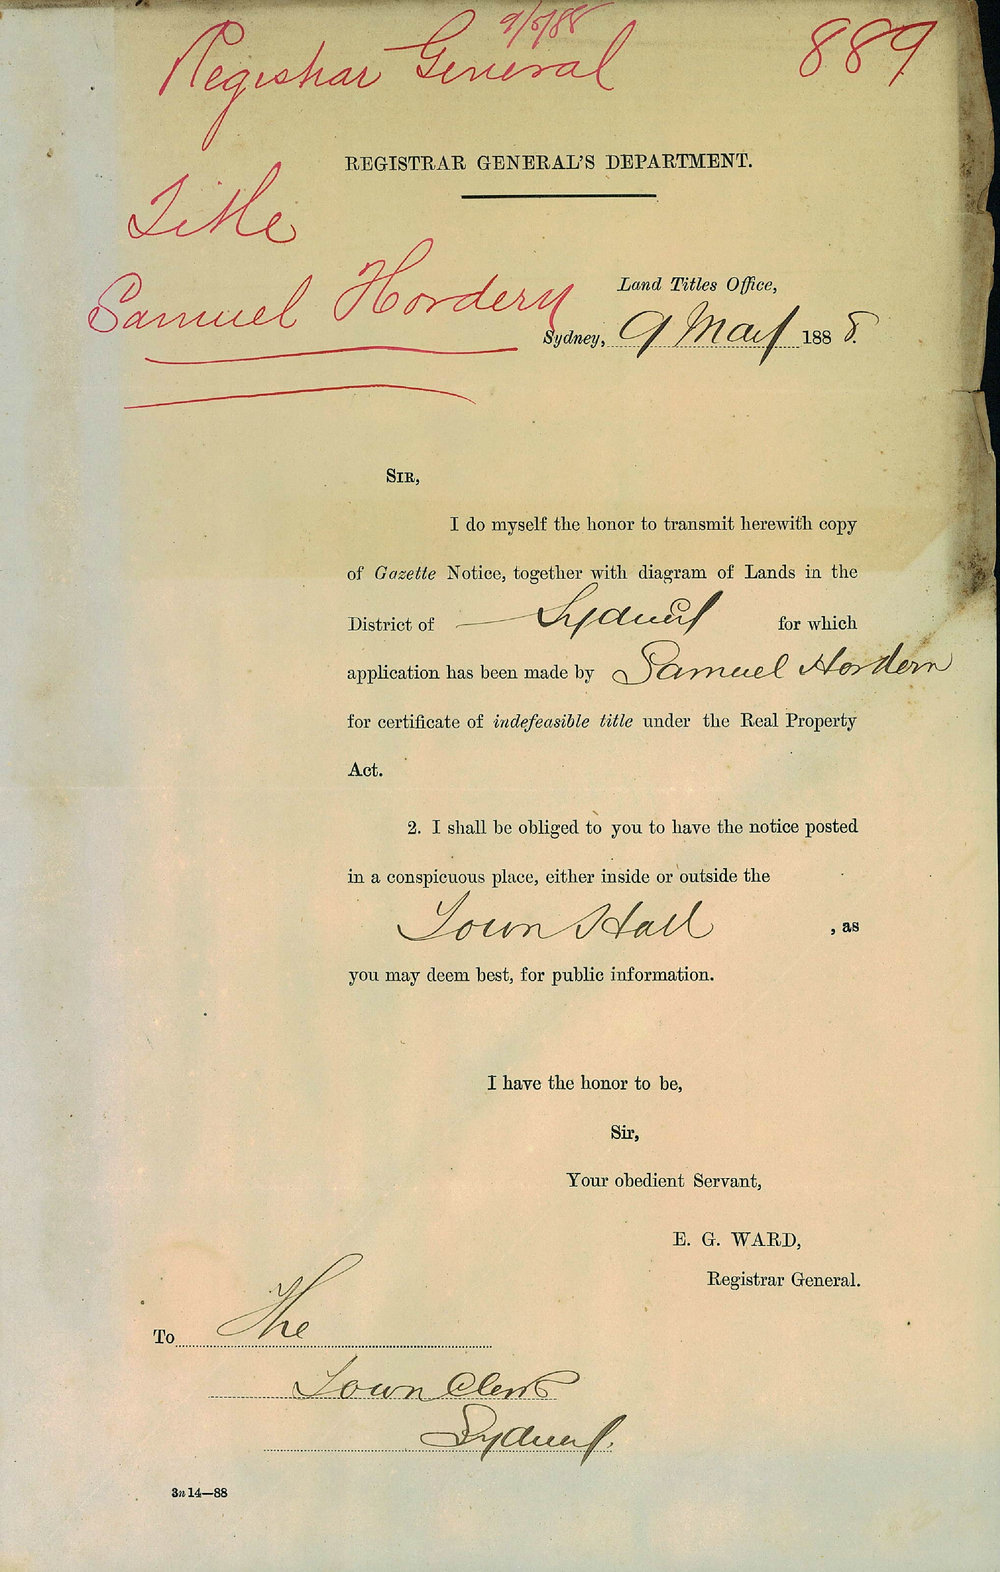 9/5/88
Registrar General 889
REGISTRAR GENERAL'S DEPARTMENT.
Title
Samuel Hordern
Land Titles Office,
Sydney, 9 May 1888.
SIR,
I do myself the honor to transmit herewith copy
of Gazette Notice, together with diagram of Lands in the
District of Sydney for which
application has been made by Samuel Hordern
for certificate of indefeasible title under the Real Property
Act.
2. I shall be obliged to you to have the notice posted
in a conspicuous place, either inside or outside the
Town Hall , as
you may deem best, for public information.
I have the honor to be,
Sir,
Your obedient Servant,
E. G. WARD,
Registrar General.
To The
Town Clerk
Sydney.
3n14—88